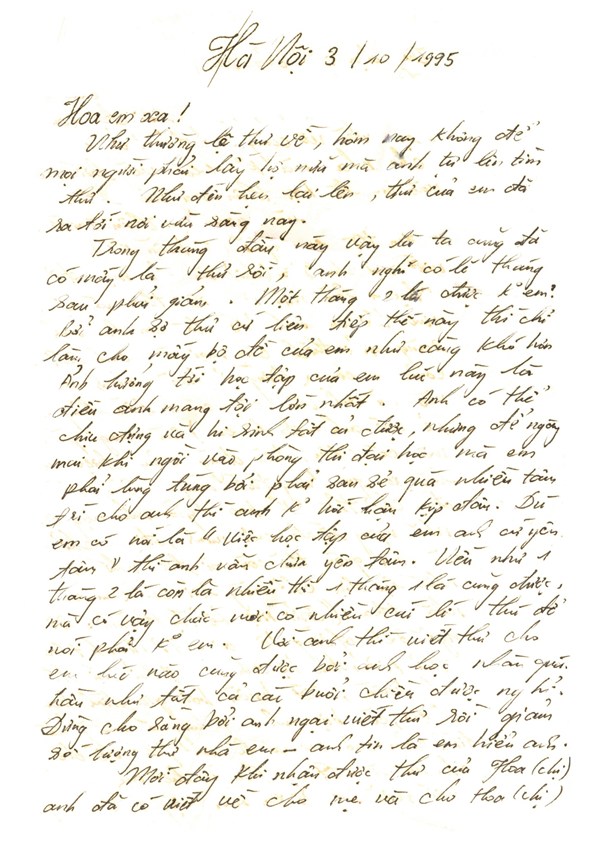 Hà Nội 3/10/1995
Hoa em xa!
Như thường lệ thư về, hôm nay không để
mọi người phải lấy hộ nữa mà anh tự lên tìm
thư. Như đến hẹn lại lên, thư của em đã
ra tới nơi vào sáng nay.
Trong tháng đầu này vậy là ta cũng đã
có mấy lá thư rồi, anh nghĩ có lẽ tháng
sau phải giảm. Một tháng 2 lá được k° em?
Bởi anh sợ thư cứ liên tiếp thế này thì chỉ
làm cho mấy bộ đề của em như càng khó hơn
Ảnh hưởng tới học tập của em lúc này là
điều anh mang tội lớn nhất. Anh có thể
chịu đựng và hi sinh tất cả được, nhưng để ngày
mai khi ngồi vào phòng thi đại học mà em
phải lúng túng bởi phải san sẻ quá nhiều tâm
trí cho anh thì anh k° hối hận kịp đâu. Dù
em có nói là "việc học tập của em anh cứ yên
tâm" thì anh vẫn chưa yên tâm. Nếu như 1
tháng 2 lá còn là nhiều thì 1 tháng 1 lá cũng được,
mà có vậy chắc mới có nhiều cái li thú để
nói phải k° em. Với anh thì viết thư cho
em lúc nào cũng được bởi anh học nhàn quá.
hầu như tất cả các buổi chiều được nghỉ.
Đừng cho rằng bởi anh ngại viết thư rồi giảm
số lượng thư nhá em - anh tin là em hiểu anh.
Mới đây khi nhận được thư của Hoa (chị)
anh đã có viết về cho mẹ và cho Hoa (chị)